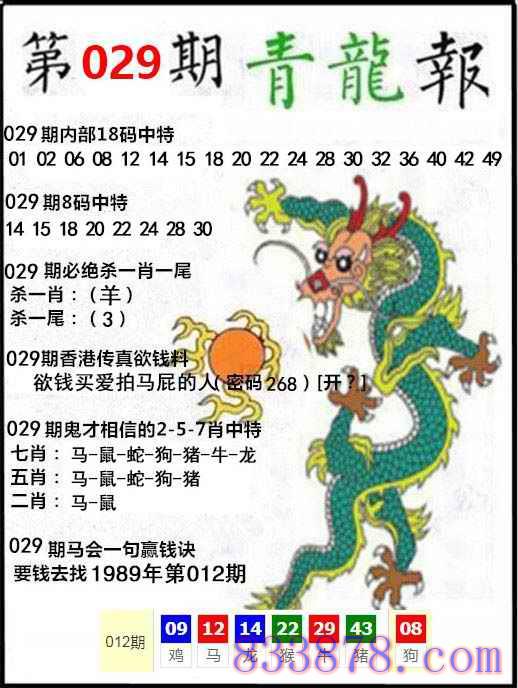 第029期青龍報
029期内部18码中特
01 02 06 08 12 14 15 18 20 22 24 28 30 32 36 40 42 49
029期8码中特
14 15 18 20 22 24 28 30
029期必绝杀一肖一尾
杀一肖：（羊）
杀一尾：（3）
029期香港传真欲钱料
欲钱买爱拍马屁的人(密码268）[开？]
029期鬼才相信的2-5-7肖中特
七肖：马-鼠-蛇-狗-猪-牛-龙
五肖：马-鼠-蛇-狗-猪
二肖：马-鼠
029期马会一句赢钱诀
要钱去找1989年第012期
012期 09 12 14 22 29 43 08
鸡 马 龙 猴 牛 猪 狗
833878.com